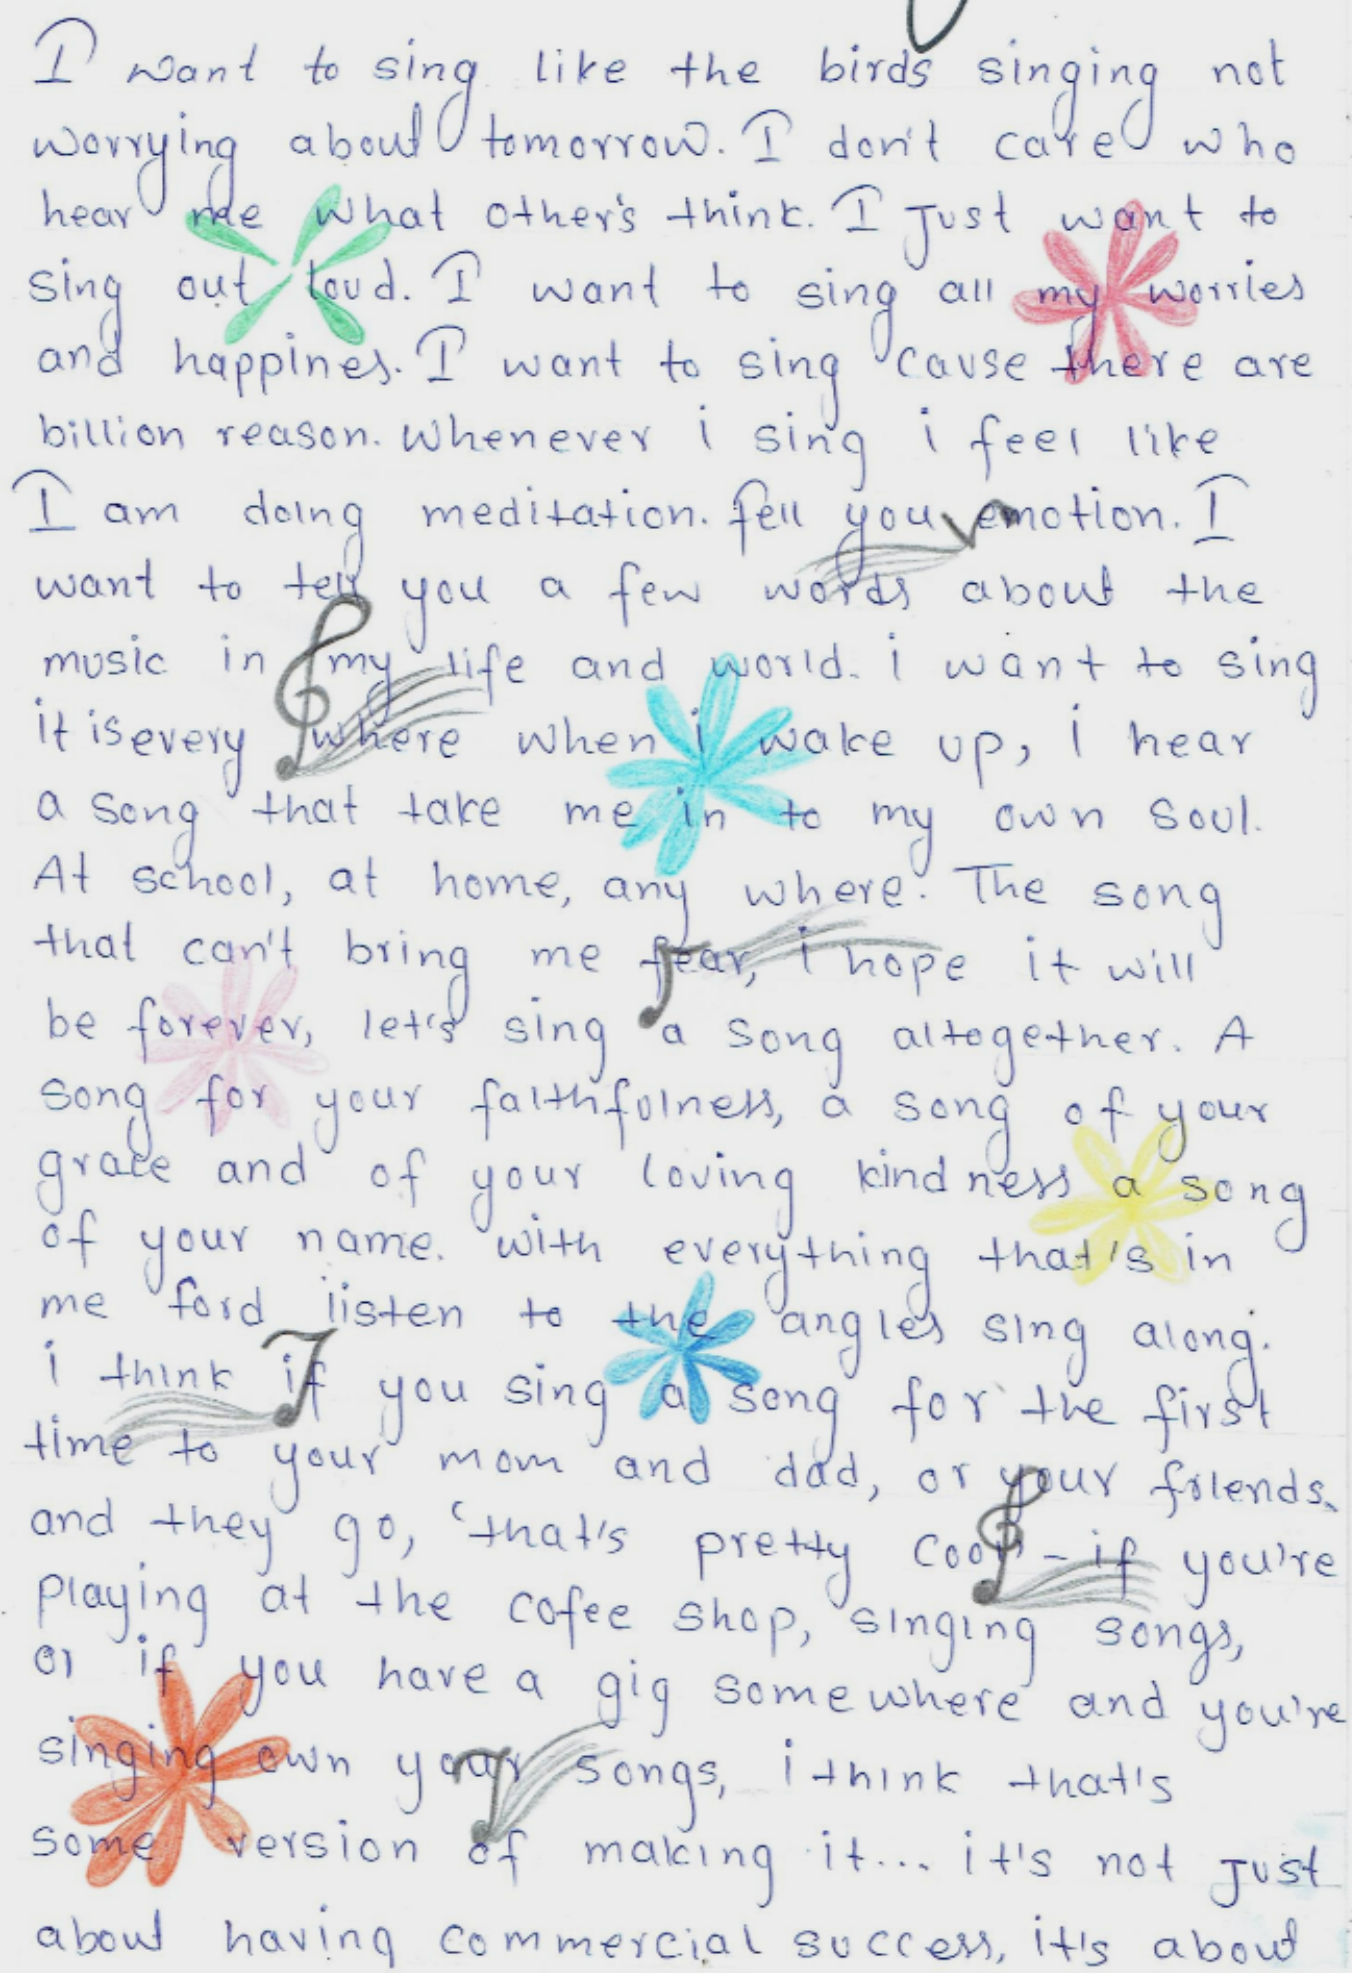 I want to sing like the birds singing not
worrying about tomorrow. I don't care who
hear me what other's think. I just want to
sing out loud. I want to sing all my worries
and happines. I want to sing 'cause there are
billion reason. Whenever i sing i feel like
I am doing meditation. fell you emotion. I
want to tell you a few words about the
music in my life and world. i want to sing
it is every where when i wake up, i hear
a song that take me in to my own soul.
At school, at home, any where. The song
that can't bring me fear, i hope it will
be forever, let's sing a song altogether. A
song for your faithfulness, a song of your
grace and of your loving kindness a song
of your name. with everything that's in
me ford listen to the angles sing along.
i think if you sing a song for the first
time to your mom and dad, or your friends.
and they go, 'that's pretty cool' - if you're
playing at the cofee shop, singing songs,
or if you have a gig somewhere and you're
singing own your songs, i think that's
some version of making it... it's not just
about having commercial success, it's about